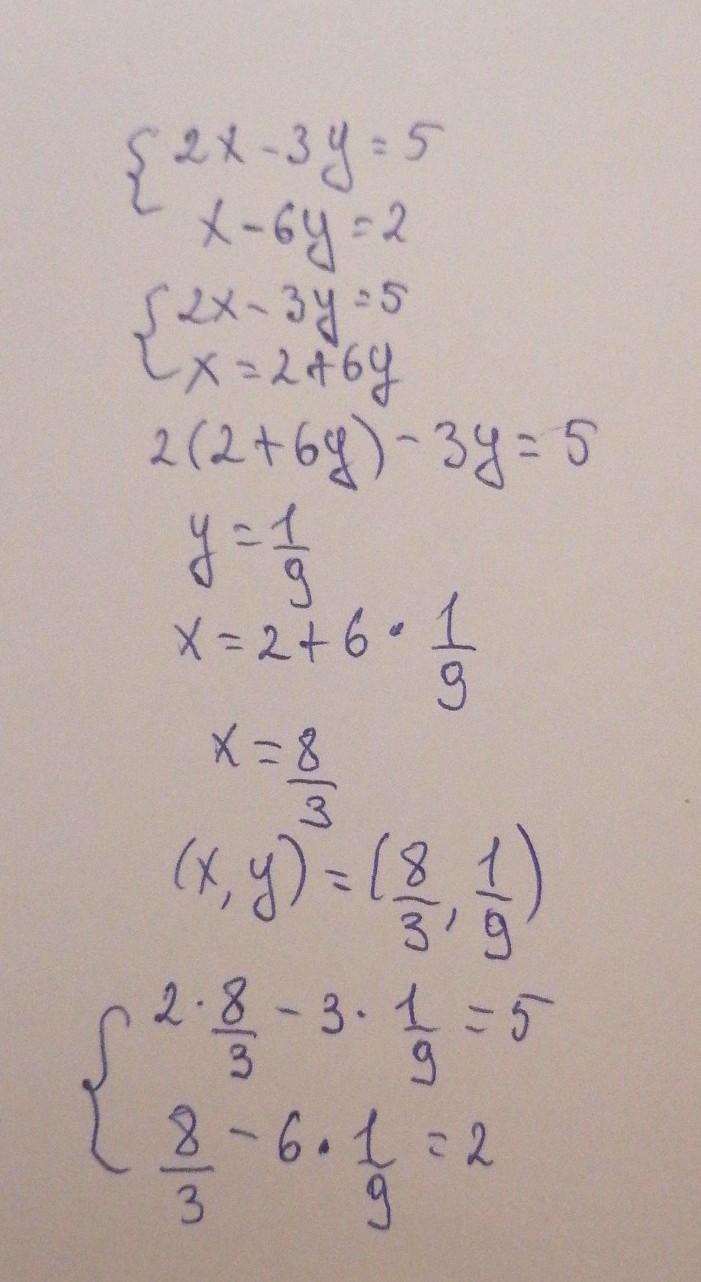 { 2x - 3y = 5
x - 6y = 2
{ 2x - 3y = 5
x = 2 + 6y
2(2 + 6y) - 3y = 5
y = 1/9
x = 2 + 6 · 1/9
x = 8/3
(x, y) = (8/3, 1/9)
{ 2 · 8/3 - 3 · 1/9 = 5
8/3 - 6 · 1/9 = 2